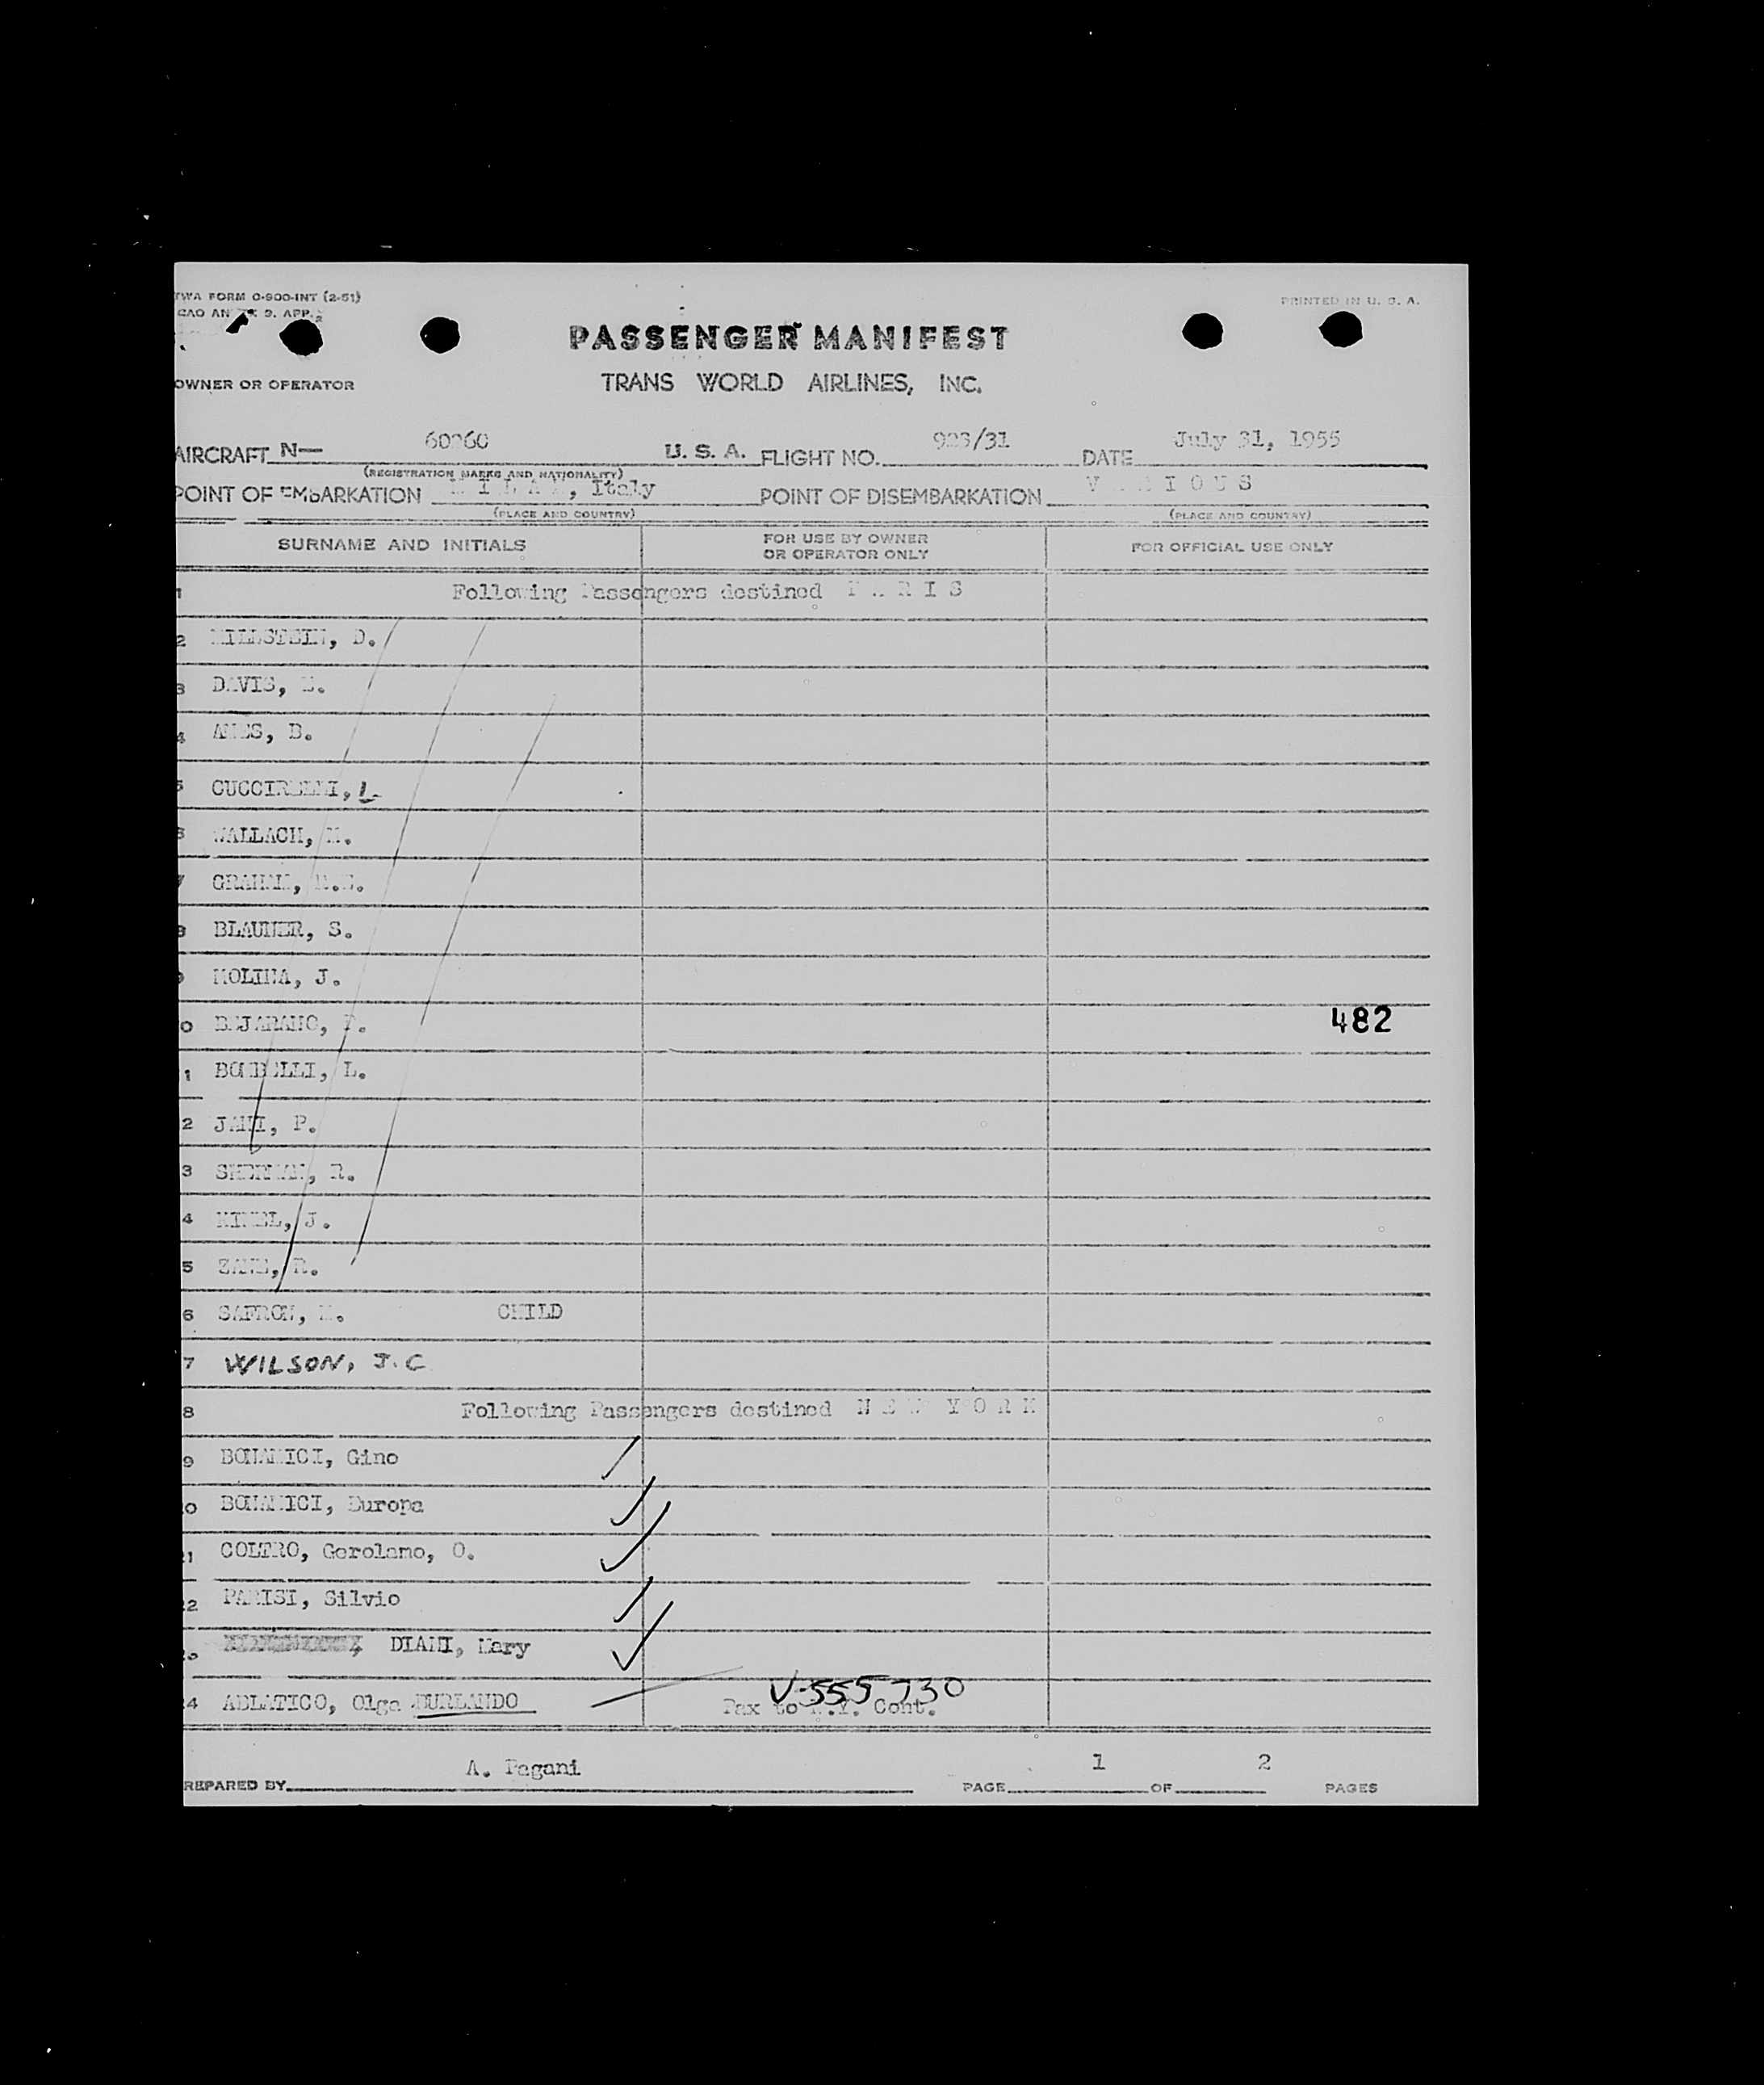 TWA FORM O-900-INT (2-51)
PRINTED IN U. S. A.
9. APP.
PASSENGER MANIFEST
OWNER OR OPERATOR
TRANS WORLD AIRLINES, INC.
AIRCRAFT N— U. S. A. FLIGHT NO. DATE July 31, 1955
(REGISTRATION MARKS AND NATIONALITY)
POINT OF EMBARKATION MILAN, Italy POINT OF DISEMBARKATION VARIOUS
(PLACE AND COUNTRY) (PLACE AND COUNTRY)
SURNAME AND INITIALS FOR USE BY OWNER OR OPERATOR ONLY FOR OFFICIAL USE ONLY
1 Following Passengers destined PARIS
2 MILLSTEIN, D.
3 DAVIS,
4 AMES, B.
5 L
6 WALLACH, M.
7
8 BLAUNER, S.
9 MOLINA, J.
0 BEJARANO,
1 L.
2 P.
3 SHERMAN, R.
4 J.
5 R.
6 SAFRON, CHILD
7 WILSON, J.C
8 Following Passengers destined NEW YORK
9 BONAMICI, Gino
0 BONAMICI, Europa
1 COLTRO, Gerolamo, O.
2 PARISI, Silvio
DIANI, Mary
4 ABLATICO, Olga BURLANDO Pax to N.Y. Cont.
V-555 730
482
A. Pagani
PREPARED BY PAGE 1 OF 2 PAGES